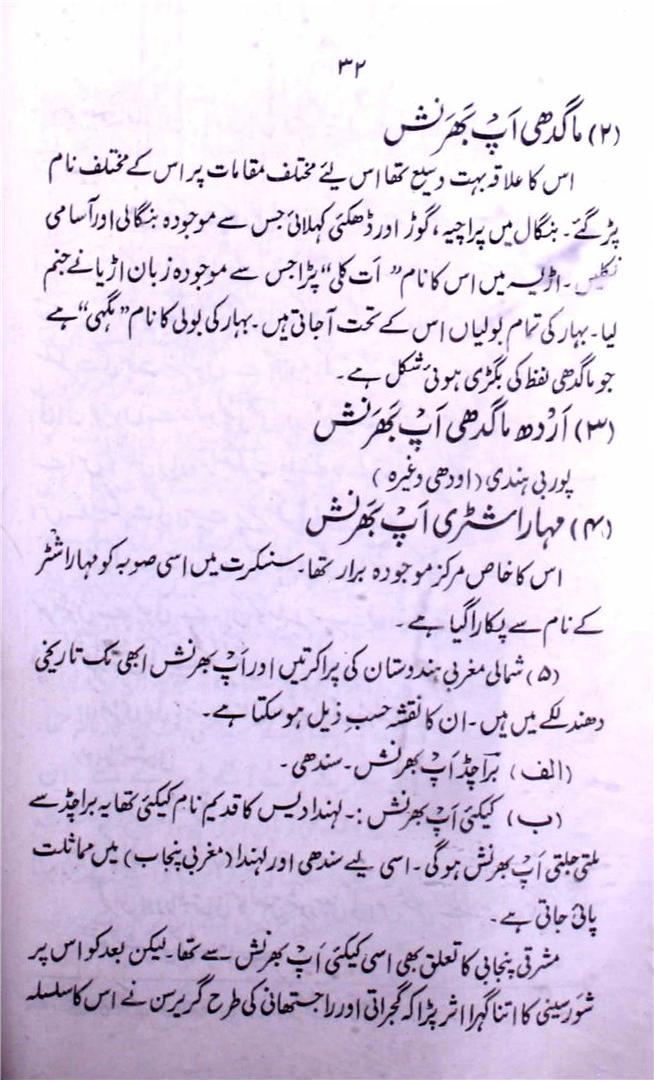 ۳۲
(۲) ماگدھی اَپ بَھرَنش
اس کا علاقہ بہت وسیع تھا اس لئے مختلف مقامات پر اس کے مختلف نام
پڑ گئے۔ بنگال میں پراچیہ، گوڑ اور ڈھکئی کہلائی جس سے موجودہ بنگالی اور آسامی
نکلیں۔ اڑیسہ میں اس کا نام ”اَت کلی“ پڑا جس سے موجودہ زبان اڑیا نے جنم
لیا۔ بہار کی تمام بولیاں اس کے تحت آجاتی ہیں۔ بہار کی بولی کا نام ”مگہی“ ہے
جو ماگدھی لفظ کی بگڑی ہوئی شکل ہے۔
(۳) اَرْدھ ماگدھی اَپ بَھرَنش
پوربی ہندی (اودھی وغیرہ)
(۴) مہاراشٹری اَپ بَھرنش
اس کا خاص مرکز موجودہ برار تھا۔ سنسکرت میں اسی صوبہ کو مہاراشٹر
کے نام سے پکارا گیا ہے۔
(۵) شمالی مغربی ہندوستان کی پراکرتیں اور اَپ بھرنش ابھی تک تاریخی
دھندلکے میں ہیں۔ ان کا نقشہ حسبِ ذیل ہو سکتا ہے۔
(الف) براچڈ اَپ بھرنش۔ سندھی۔
(ب) کیکئی اَپ بھرنش :۔ لہندا دیس کا قدیم نام کیکئی تھا یہ براچڈ سے
ملتی جلتی اَپ بھرنش ہوگی۔ اسی لیے سندھی اور لہندا (مغربی پنجاب) میں مماثلت
پائی جاتی ہے۔
مشرقی پنجابی کا تعلق بھی اسی کیکئی اَپ بھرنش سے تھا۔ لیکن بعد کو اس پر
شورسینی کا اتنا گہرا اثر پڑا کہ گجراتی اور راجستھانی کی طرح گریرسن نے اس کا سلسلہ